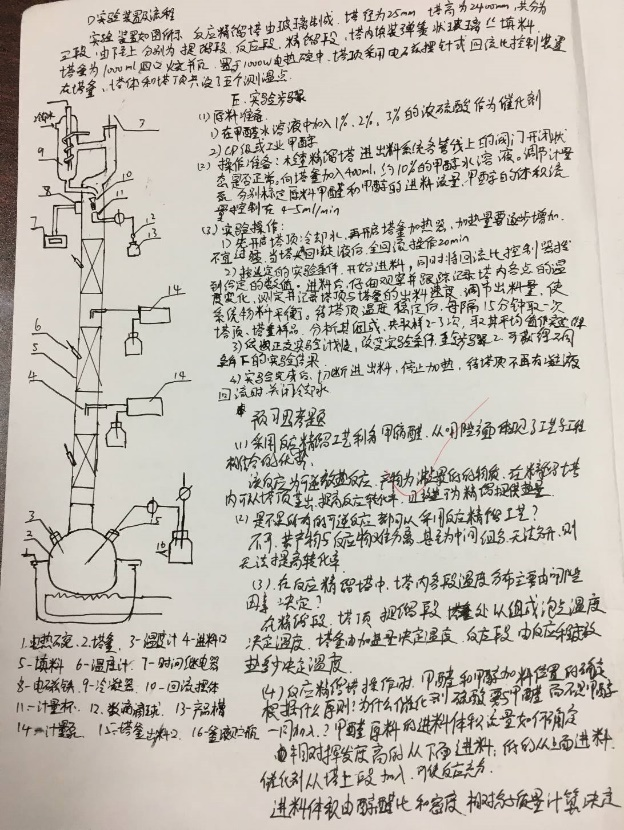 D实验装置及流程
实验装置如图所示，反应精馏塔由玻璃制成，塔径为25mm，塔高为2400mm，共分为
三段，由下至上分别为提馏段、反应段、精馏段，塔内填装弹簧状玻璃丝填料
塔釜为1000ml四口烧瓶，置于1000W电热碗中，塔顶采用电磁摆针式回流比控制装置
在塔釜、塔体和塔顶共设了五个测温点
E. 实验步骤
(1) 原料准备
1)在甲醛水溶液中加入1%、2%、3%的浓硫酸作为催化剂
2)CP级或工业甲醇
(2) 操作准备：检查精馏塔进出料系统各管线上的阀门开闭状
态是否正常。向塔釜加入400ml, 约10%的甲醇水溶液。调节计量
泵，分别标定原料甲醛和甲醇的进料流量，甲醇的体积流
量控制在4-5ml/min
(3) 实验操作:
1)先开启塔顶冷却水，再开启塔釜加热器，加热量要逐步增加，
不宜过猛，当塔头回流液后，全回流操作20min
2)按选定的实验条件，开始进料，同时将回流比控制器拨
到给定的数值。进料后，仔细观察并跟踪记录塔内各点的温
度变化，测定并记录塔顶与塔釜的出料速度，调节出料量，使
系统物料平衡。待塔顶温度稳定后，每隔15分钟取一次
塔顶、塔釜样品，分析其组成，共取样2-3次，取其平均值
3)依照正交实验计划表，改变实验条件，重复步骤2，可获得不同
条件下的实验结果
4)实验完成后，切断进出料，停止加热，待塔顶不再有凝液
回流时，关闭冷却水
预习思考题
(1) 采用反应精馏工艺制备甲缩醛，从哪些方面体现了工艺与工程
相结合的优势
该反应为可逆放热反应，产物为沸点低的物质，在精馏塔
内可从塔顶蒸出，提高反应转化率，且热量可为精馏提供热量
(2) 是不是所有的可逆反应都可以采用反应精馏工艺？
不可，若产物与反应物难分离，甚至为中间组分，无法分开，则
无法提高转化率
(3). 在反应精馏塔中，塔内各段温度分布主要由哪些
因素决定？
在精馏段、塔顶、提馏段处以组成泡点温度
决定温度，塔釜由加热量决定温度，反应段由反应释放
热多少决定温度
(4) 反应精馏塔操作时，甲醛和甲醇加料位置的确定
根据什么原则？为什么催化剂硫酸要与甲醛而不是甲醇
一同加入？甲醛原料的进料体积流量如何确定
由相对挥发度高的从下面进料，低的从上面进料
催化剂从塔上段加入，可使反应充分
进料体积由醇醛比和密度、相对分子质量计算决定
冷却水
9
7
8
10
11
12
7
13
14
6
5
14
4
3
2
1
15
16
1.电热碗 2.塔釜 3-温度计 4-进料口
5-填料 6-温度计 7-时间继电器
8-电磁铁 9-冷凝器 10-回流摆体
11-计量杯 12.数滴滴球 13-产品槽
14-计量泵 15-塔釜出料口 16-釜液贮瓶